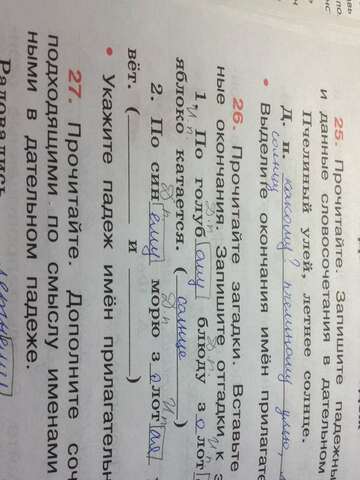 25. Прочитайте. Запишите падежны
и данные словосочетания в дательном
Пчелиный улей, летнее солнце.
Д. п. какому? пчелиному улью,
солнцу
• Выделите окончания имён прилагате
26. Прочитайте загадки. Вставьте
ные окончания. Запишите отгадки к з
И п. Д. п
1. По голуб ому блюду з о лот
яблоко катается. ( солнце )
Д п Д п И п
2. По син ему морю з о лот ая
вёт. ( и )
• Укажите падеж имён прилагательн
27. Прочитайте. Дополните соч
подходящими по смыслу именами
ными в дательном падеже.
Радовались